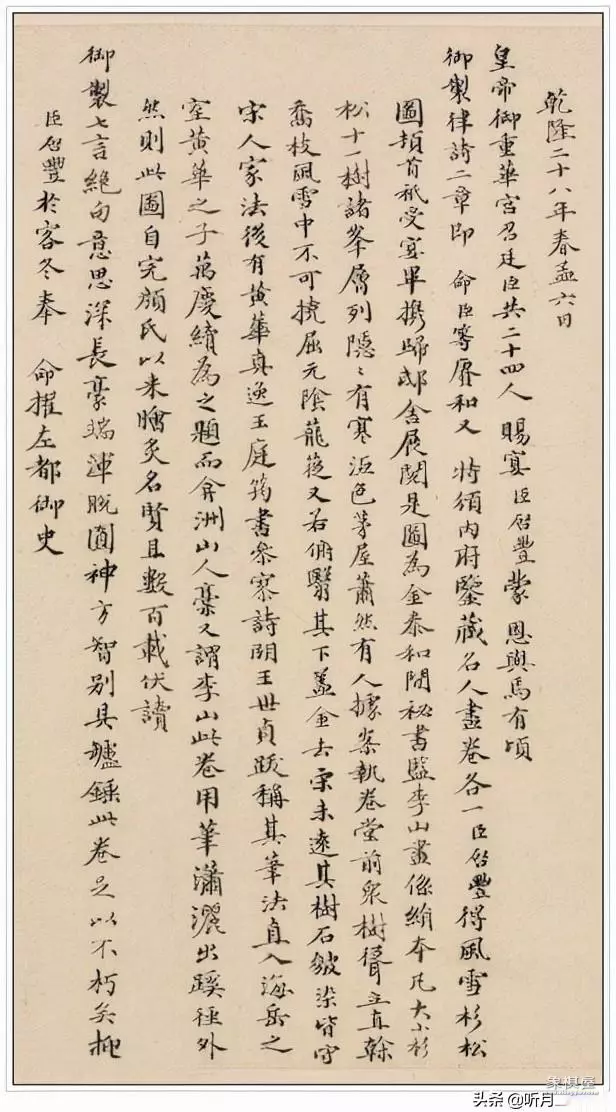 乾隆二十八年春孟六日
皇帝御重華宮召廷臣共二十四人 賜宴臣啟豐蒙 恩與焉有頃
御製律詩二章即 命臣等賡和又 特頒內府鑒藏名人畫卷各一臣啟豐得風雪杉松
圖頓首祇受宴畢携歸邸舍展閱是圖為金泰和間秘書監李山畫係絹本凡大小杉
松十一樹諸峯層列隱〻有寒沍色茅屋蕭然有人據案執卷堂前衆樹聳立直幹
喬枝風雪中不可撓屈元陰蘢蓯又若俯翳其下蓋金去宋未遠其樹石皴染皆守
宋人家法後有黃華真逸王庭筠書參寥詩明王世貞跋稱其筆法直入海岳之
室黃華之子萬慶續為之題而弇洲山人稾又謂李山此卷用筆瀟灑出蹊徑外
然則此圖自完顏氏以来膾炙名賢且數百載伏讀
御製七言絶句意思深長豪端渾脫圓神方智別具罏錘此卷足以不朽矣抑
臣啟豐於客冬奉 命擢左都御史
象棋屋
头条 @听月_